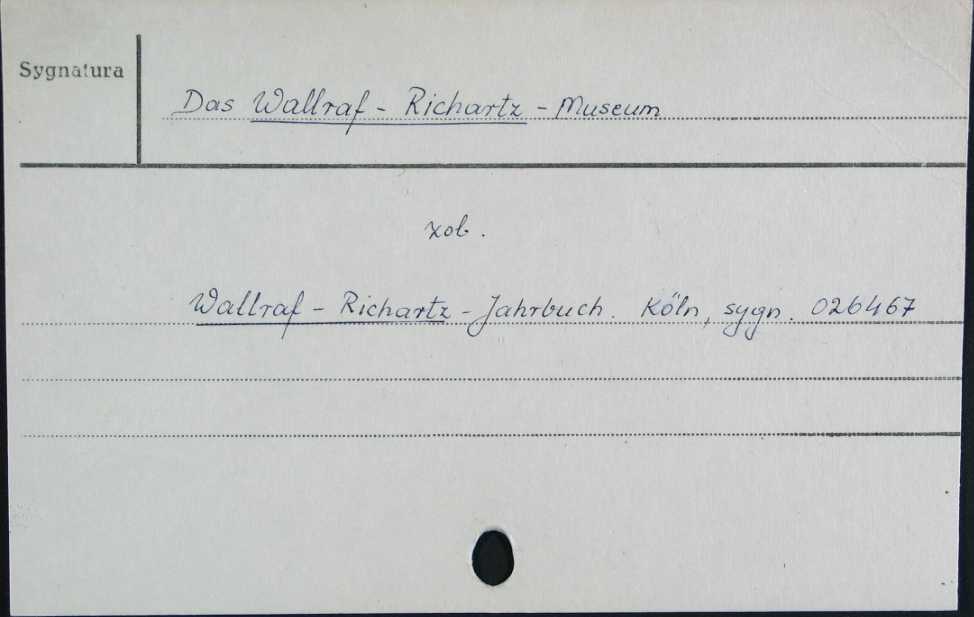 Sygnatura
Das Wallraf - Richartz - Museum
zob.
Wallraf - Richartz - Jahrbuch. Köln, sygn. 026467